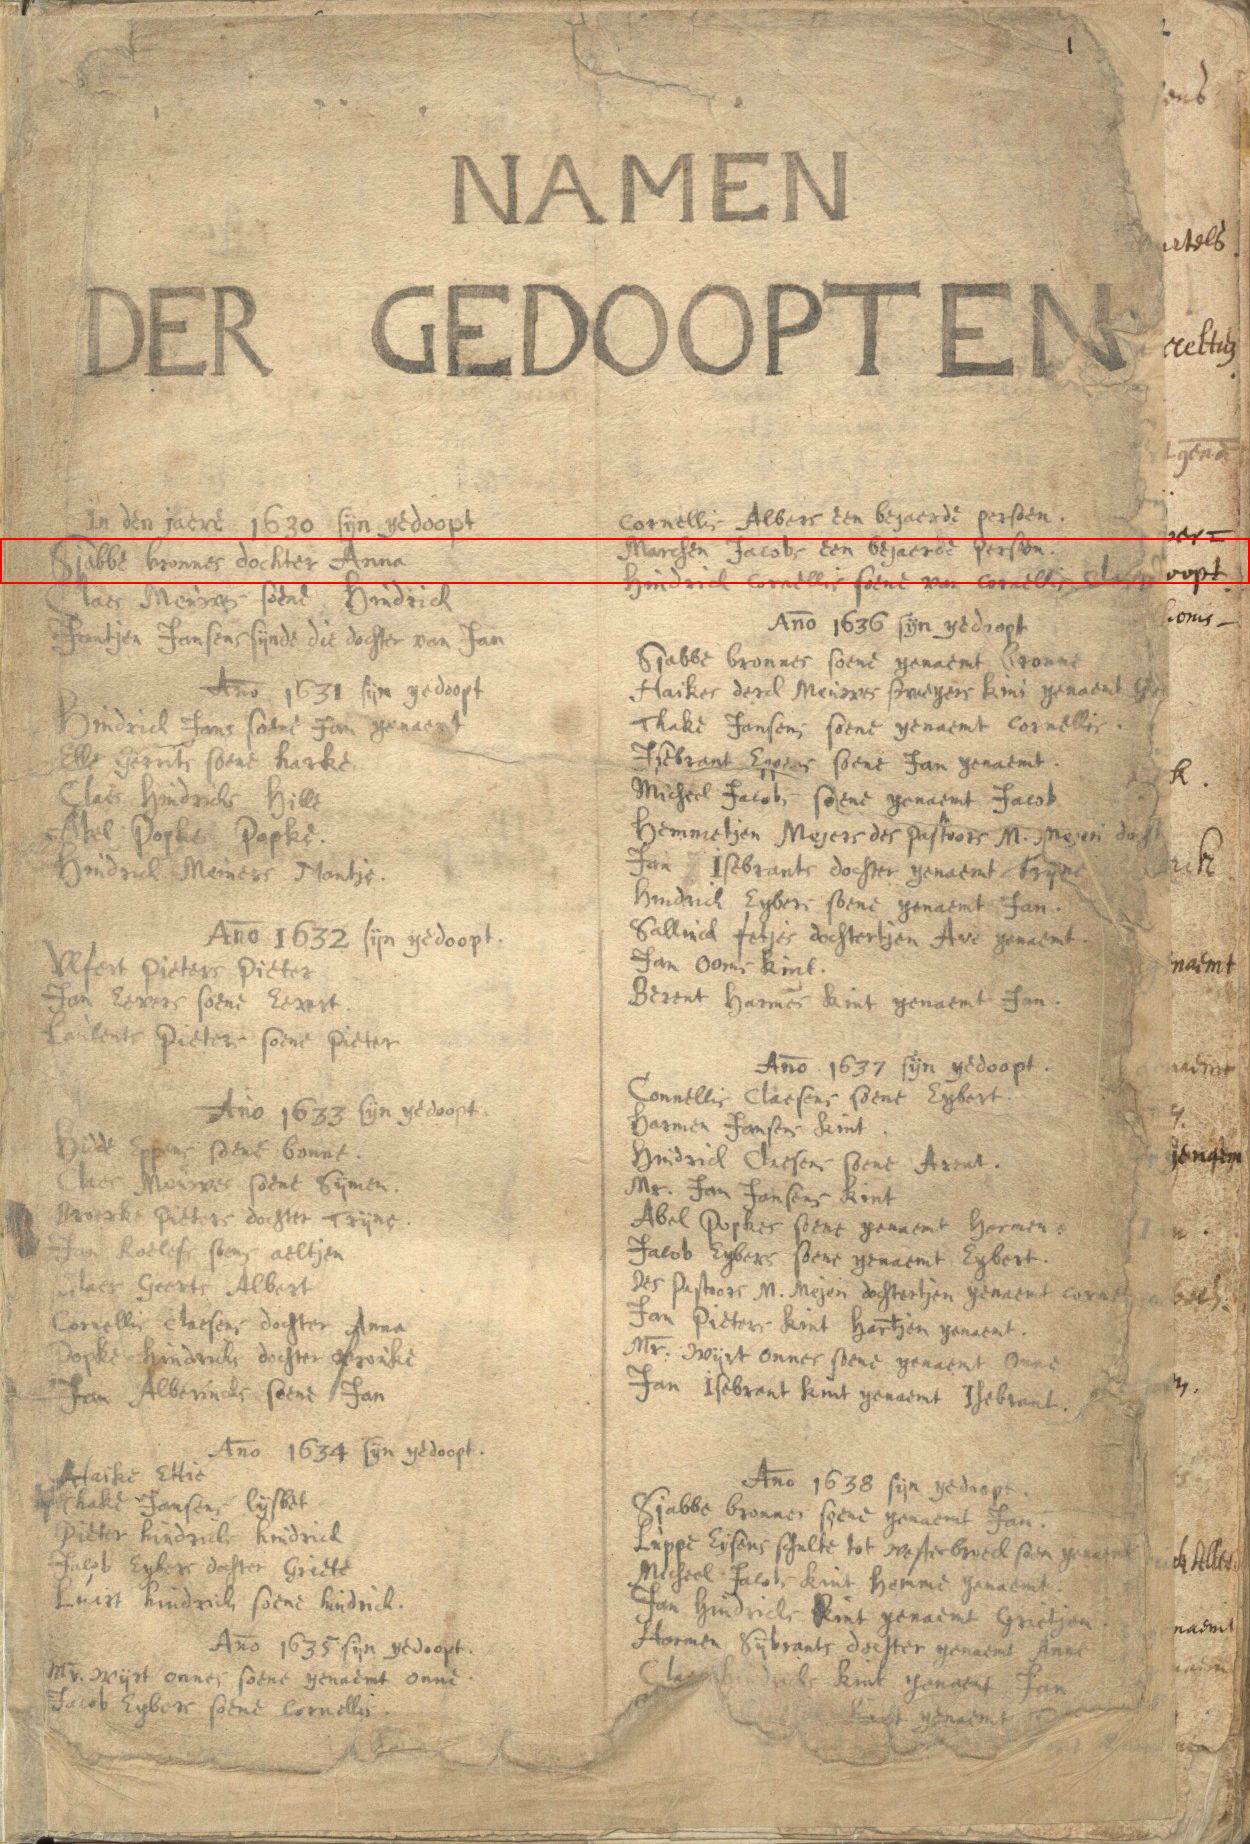 NAMEN
DER GEDOOPTEN
In den jaere 1630 sijn gedoopt
Sjabbe bronnes dochter Anna
Claes Meuwes soene Hindrick
Jantjen Jansens sijnde die dochter van Jan
Año 1631 sijn gedoopt
Hindrick Jans soene Jan genaemt
Elle Gerrits soene harke
Claes Hindricks Hille
Abel Popkes Popke.
Hindrick Meiners
Año 1632 sijn gedoopt.
Ulfert Pieters Pieter
Jan Eevers soene Eevert.
Pieters soene Pieter
Año 1633 sijn gedoopt.
Eppens soene bonne.
Claes Mouwes soene Sijmen.
Broerke Pieters dochter Trijne.
Jan Roelefs soene aeltjen
Claes Geerts Albert
Cornellis Claesens dochter Anna
Popke hindricks dochter
Jan Alberincks soene Jan
Año 1634 sijn gedoopt.
Haike Ettie
Thake Jansens lijsbet
Pieter hindricks hindrick
Jacob Eybers dochter Griete
Luirt hindricks soene hindrick.
Año 1635 sijn gedoopt.
Mr. Wijrt onnes soene genaemt onne
Jacob Eybers soene Cornellis.
Cornellis Albers een bejaerde persoen.
Marchen Jacobs een bejaerde persoen.
Hindrick Cornellis soene van Cornellis
Año 1636 sijn gedoopt
Sjabbe bronnes soene genaemt bronne
Haikes derck Meuwes swagers kint genaemt
Thake Jansens soene genaemt Cornellis.
Isebrant Eppens soene Jan genaemt.
Micheel Jacobs soene genaemt Jacob
Hemmetjen Mejers des Pastoors M. Mejeri docht
Jan Isebrants dochter genaemt trijne
Hindrick Eybers soene genaemt Jan.
Sallinck fetjes dochtertjen Ave genaemt.
Jan Ooms kint.
Berent Harmes kint genaemt Jan.
Año 1637 sijn gedoopt.
Connellis Claesens soene Eybert.
Harmen Jansens kint.
Hindrick Claesens soene Arent.
Mr. Jan Jansens kint
Abel Popkes soene genaemt Harmen
Jacob Eybers soene genaemt Eybert.
Des Pastoors M. Mejeri dochtertjen genaemt Cornel
Jan Pieters kint Hartjen genaemt.
Mr. Wijrt onnes soene genaemt Onne
Jan Isebrant kint genaemt Isebrant.
Año 1638 sijn gedoopt.
Sjabbe bronnes soene genaemt Jan.
Luppe Eisens schulte tot Westerbroeck soen genaemt
Micheel Jacobs kint Hemme genaemt.
Jan Hindricks kint genaemt Grietjen
Harmen Sijbrants dochter genaemt Anne
Claes hindricks kint genaemt Jan
kint genaemt